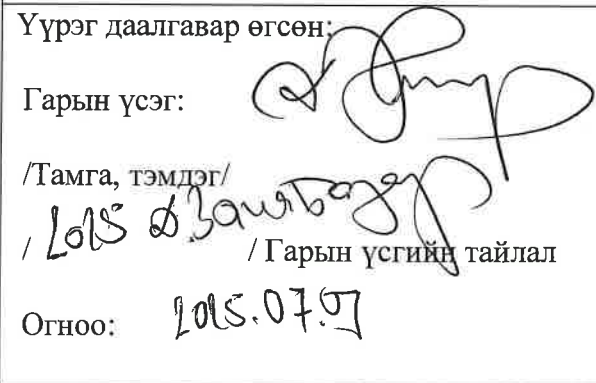 Үүрэг даалгавар өгсөн:
Гарын үсэг:
/Тамга, тэмдэг/
/ 2015 Д.Заяабазар / Гарын үсгийн тайлал
Огноо: 2015.07.07